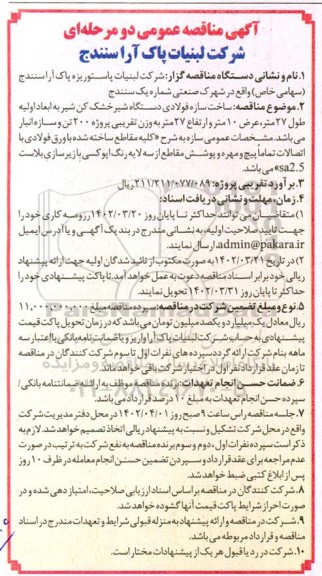 آگهی مناقصه عمومی دو مرحله‌ای
شرکت لبنیات پاک آرا سنندج
۱. نام و نشانی دستگاه مناقصه گزار: شرکت لبنیات پاستوریزه پاک آرا سنندج
(سهامی خاص) واقع در شهرک صنعتی شماره یک سنندج
۲. موضوع مناقصه: ساخت سازه فولادی دستگاه شیر خشک کن شیر به ابعاد اولیه
طول ۲۷ متر، عرض ۱۰ متر و ارتفاع ۲۷ متر به وزن تقریبی پروژه ۲۰۰ تن و سازه انبار
می باشد. مشخصات عمومی سازه به شرح «کلیه مقاطع ساخته شده با ورق فولادی با
اتصالات تماما پیچ و مهره و پوشش مقاطع از سه لایه رنگ اپوکسی با زیرسازی بلاست
sa2.5» می باشد.
۳. برآورد تقریبی پروژه: ۲۱۱/۲۱۱/۰۷۷/۰۸۹ ریال
۴. زمان، مهلت و نشانی دریافت اسناد:
۱) متقاضیان می توانند حداکثر تا پایان روز ۱۴۰۲/۰۳/۲۰ رزومه کاری خود را
جهت تایید صلاحیت اولیه به نشانی مندرج در بند یک آگهی و یا آدرس ایمیل
admin@pakara.ir ارسال نمایند.
۲) در تاریخ ۱۴۰۲/۰۳/۲۱ به صورت مکتوب از تائید شدگان اولیه جهت ارائه پیشنهاد
ریالی خود برابر اسناد مناقصه دعوت به عمل خواهد آمد. تا پاکت پیشنهادی خود را
حداکثر تا پایان روز ۱۴۰۲/۰۳/۳۱ تحویل نمایند.
۵. نوع و مبلغ تضمین شرکت در مناقصه: سپرده مناقصه مبلغ ۱۱,۰۰۰,۰۰۰,۰۰۰
ریال معادل یک میلیارد و یکصد میلیون تومان می باشد که در زمان تحویل پاکت قیمت
پیشنهادی به حساب شرکت لبنیات پاک آرا واریز و یا ضمانت نامه بانکی با اعتبار سه
ماهه بنام شرکت ارائه گردد سپرده های نفرات اول تا سوم شرکت کنندگان در مناقصه
تا زمان عقد قرارداد نفر اول در اختیار شرکت باقی خواهد ماند.
۶. ضمانت حسن انجام تعهدات: برنده مناقصه موظف به ارائه ضمانتنامه بانکی /
سپرده حسن انجام تعهدات به مبلغ ۱۰ درصد قرارداد می باشد.
۷. جلسه مناقصه راس ساعت ۹ صبح روز ۱۴۰۲/۰۴/۰۱ در محل دفتر مدیریت شرکت
واقع در محل شرکت تشکیل و نسبت به پیشنهاد ریالی اتخاذ تصمیم خواهد شد. لازم به
ذکر است سپرده نفرات اول، دوم و سوم برنده مناقصه به نفع شرکت به ترتیب در صورت
عدم مراجعه برای عقد قرارداد و سپردن تضمین حسن انجام معامله در ظرف ۱۰ روز
پس از ابلاغ کتبی ضبط خواهد شد.
۸. شرکت کنندگان در مناقصه بر اساس اسناد ارزیابی صلاحیت، امتیاز دهی شده و در
صورت احراز شرایط پاکت قیمت آنها گشوده خواهد شد.
۹. شرکت در مناقصه و ارائه پیشنهاد به منزله قبولی شرایط و تعهدات مندرج در اسناد
مناقصه و قرارداد مربوطه می باشد.
۱۰. شرکت در رد یا قبول هر یک از پیشنهادات مختار است.